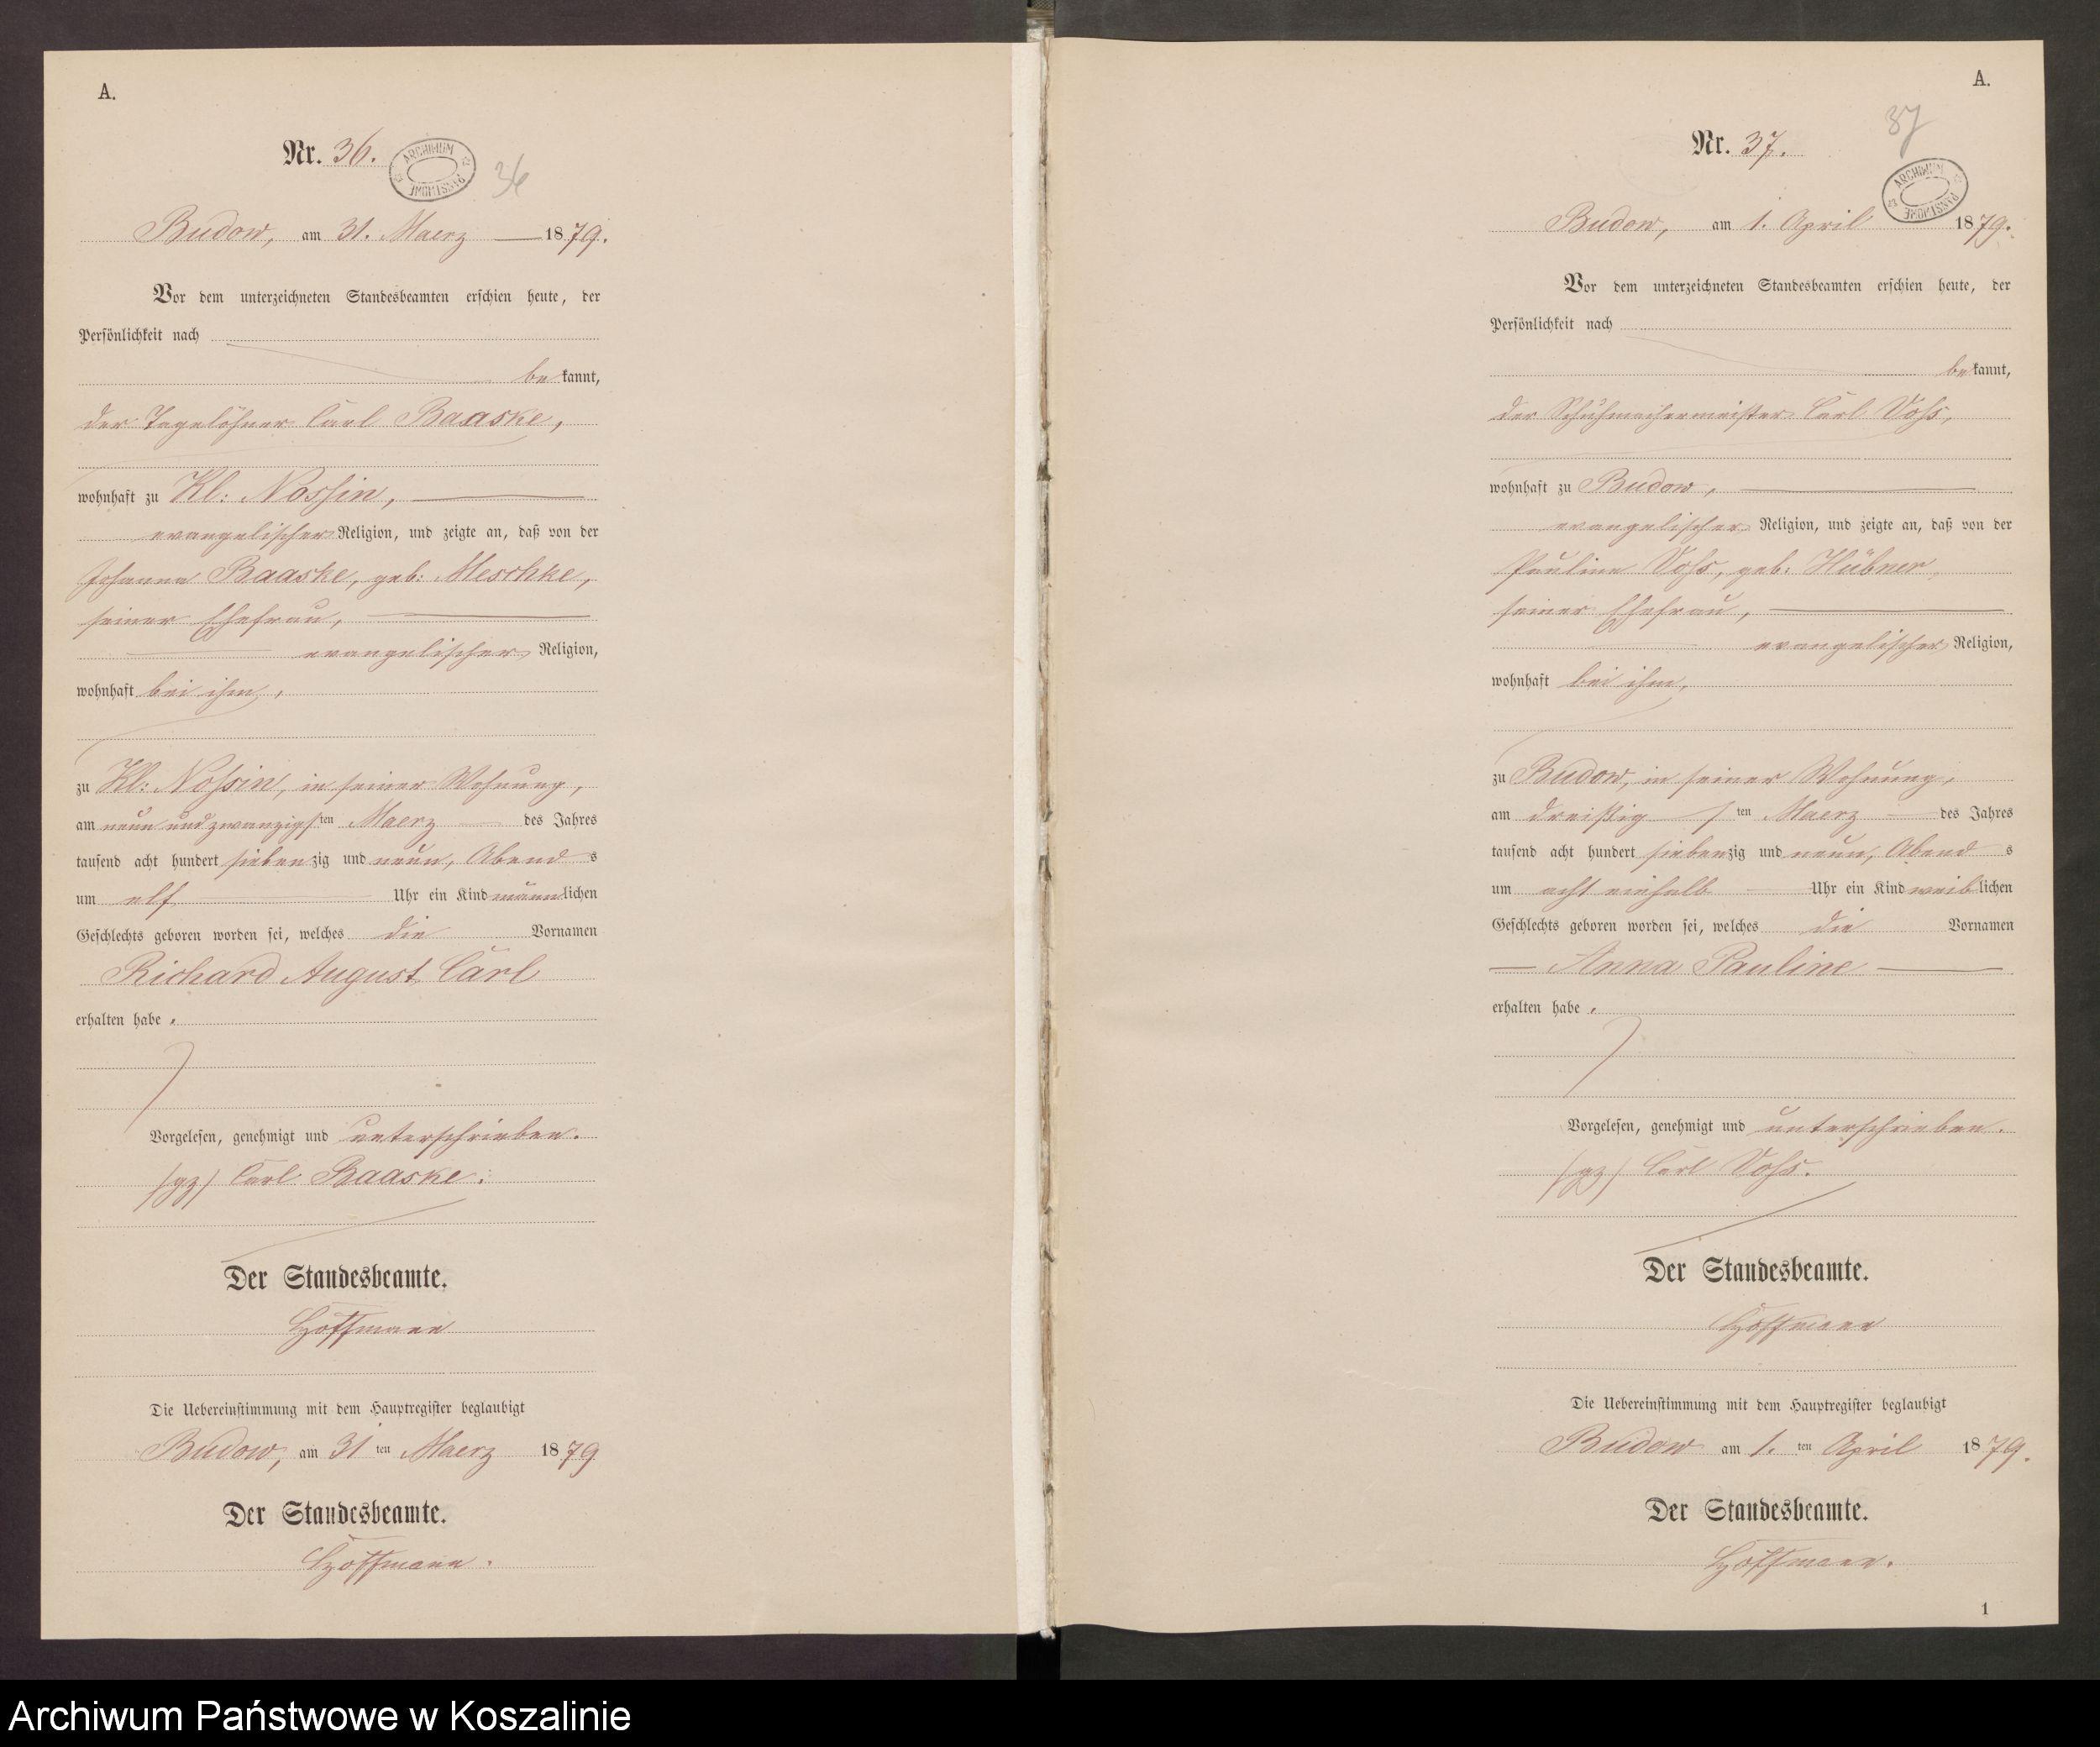 A.
Nr. 36.
ARCHIWUM PAŃSTWOWE
36
Budow, am 31. Maerz 1879.
Vor dem unterzeichneten Standesbeamten erschien heute, der
Persönlichkeit nach
bekannt,
der Tagelöhner Carl Baaske,
wohnhaft zu Kl: Nossin,
evangelischer Religion, und zeigte an, daß von der
Johanna Baaske, geb: Meschke,
seiner Ehefrau,
evangelischer Religion,
wohnhaft bei ihm,
zu Kl: Nossin, in seiner Wohnung,
am neun und zwanzigsten Maerz des Jahres
tausend acht hundert siebenzig und neun, Abends
um elf Uhr ein Kind männlichen
Geschlechts geboren worden sei, welches die Vornamen
Richard August Carl
erhalten habe.
Vorgelesen, genehmigt und unterschrieben.
(gz) Carl Baaske.
Der Standesbeamte.
Hoffmann
Die Uebereinstimmung mit dem Hauptregister beglaubigt
Budow, am 31ten Maerz 1879
Der Standesbeamte.
Hoffmann.
A.
37
Nr. 37.
ARCHIWUM PAŃSTWOWE
Budow, am 1. April 1879.
Vor dem unterzeichneten Standesbeamten erschien heute, der
Persönlichkeit nach
bekannt,
der Schuhmachermeister Carl Voss,
wohnhaft zu Budow,
evangelischer Religion, und zeigte an, daß von der
Pauline Voss, geb: Hübner,
seiner Ehefrau,
evangelischer Religion,
wohnhaft bei ihm,
zu Budow, in seiner Wohnung,
am dreißigsten Maerz des Jahres
tausend acht hundert siebenzig und neun, Abends
um acht einhalb Uhr ein Kind weiblichen
Geschlechts geboren worden sei, welches die Vornamen
Anna Pauline
erhalten habe.
Vorgelesen, genehmigt und unterschrieben.
(gz) Carl Voss.
Der Standesbeamte.
Hoffmann
Die Uebereinstimmung mit dem Hauptregister beglaubigt
Budow am 1.ten April 1879.
Der Standesbeamte.
Hoffmann.
1
Archiwum Państwowe w Koszalinie